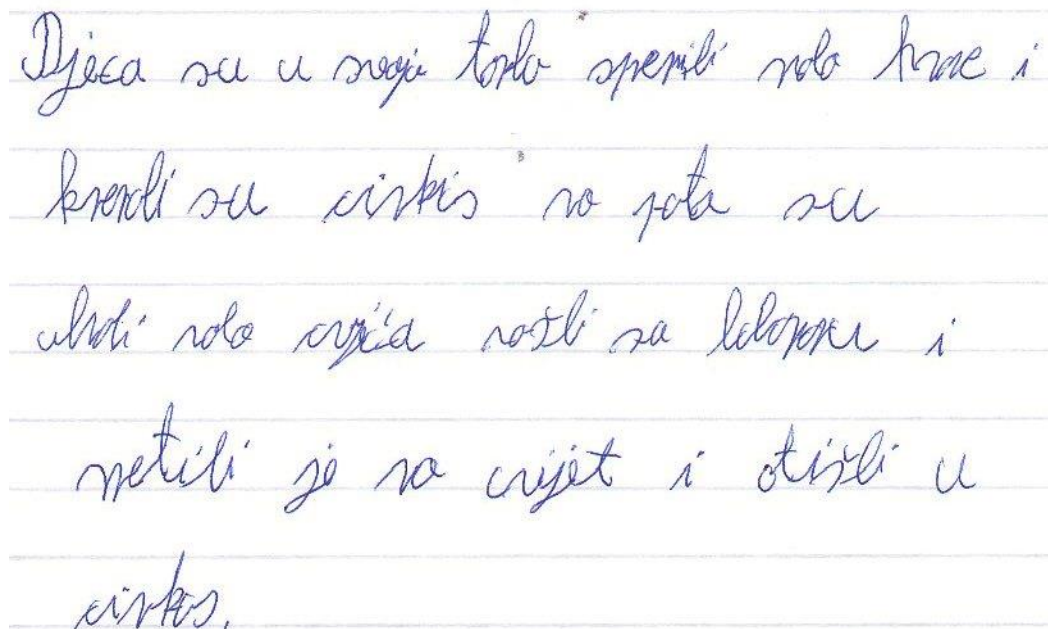 Djeca su u svoju torbu spremili malo hrane i
krenuli su cirkus na putu su
ubrali malo cvijeća našli su
metili je na cvijet i otišli u
cirkus.